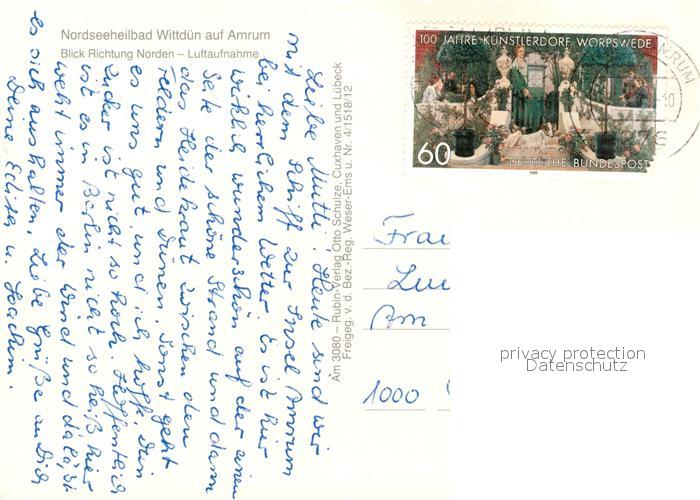 Nordseeheilbad Wittdün auf Amrum
Blick Richtung Norden – Luftaufnahme
Liebe Mutti! Heute sind wir
mit dem Schiff zur Insel Amrum
bei herrlichem Wetter. Es ist hier
wirklich wunderschön auf der einen
Seite der schöne Strand und dann
das Heidekraut zwischen den
Feldern und Dünen. Sonst geht
es uns gut und ich hoffe, Dein
Zucker ist nicht so hoch. Hoffentlich
ist es in Berlin nicht so heiß, hier
weht immer der Wind und da läßt
es sich aushalten. Liebe Grüße an Dich
Deine u. Joachim.
Am 3080 – Rubin-Verlag Otto Schulze, Cuxhaven und Lübeck
Freigeg. v. d. Bez.-Reg. Weser-Ems u. Nr. 4/1518/12
100 JAHRE KÜNSTLERDORF WORPSWEDE
60
DEUTSCHE BUNDESPOST
1989
AMRUM
Frau
Am
1000
privacy protection
Datenschutz